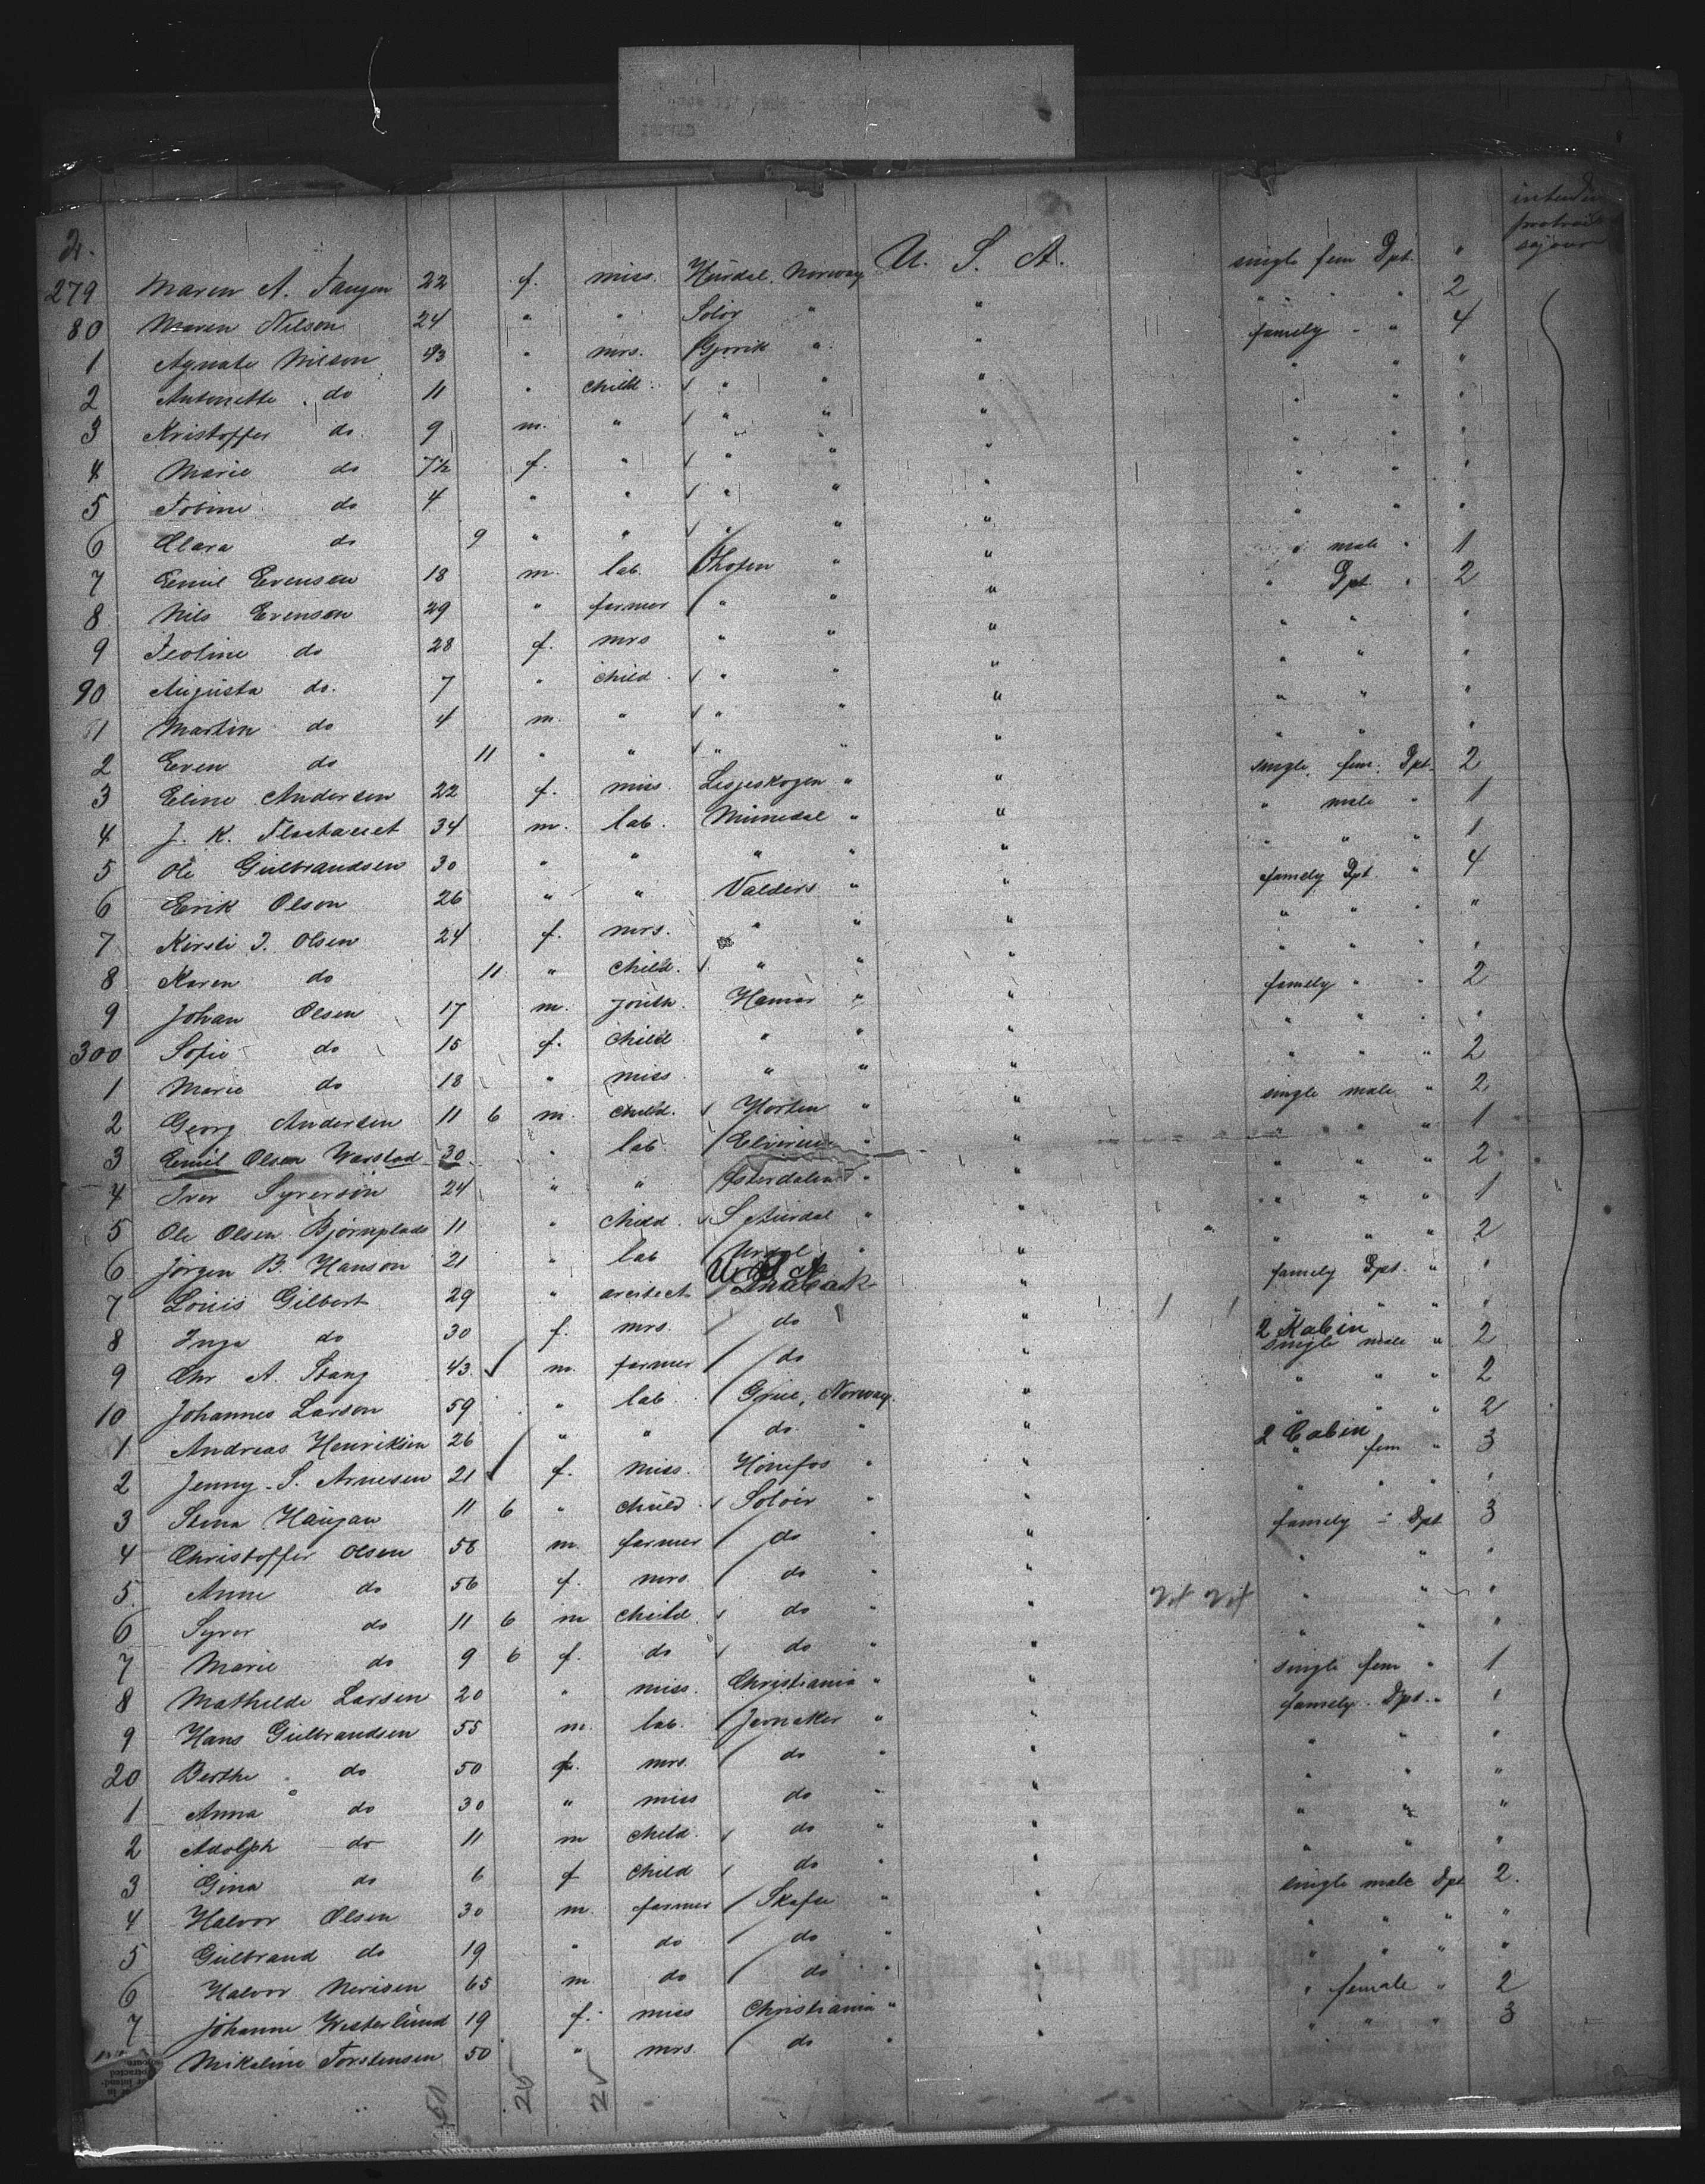 2.
intendin
protract
sojourn
279 Maren A. Taugen 22 f. miss. Hurdal, Norway U. S. A. single fem Dpt. "
80 Maren Nilson 24 " " Solör " " " " " 2
1 Agnate Nilson 43 " mrs. Gjovik " " family " " 4
2 Antonette do 11 " child " " " " " "
3 Kristoffer do. 9 m. " " " " " " "
4 Marie do 7½ f. " " " " " " "
5 Tobine do 4 " " " " " " " "
6 Clara do 9 " " " " " " " "
7 Emil Evensen 18 m. lab. Thoten " " " male " 1
8 Nils Evenson 29 " farmer " " " " Dpt. " 2
9 Teoline do 28 f. mrs " " " " " "
90 Augusta do. 7 " child " " " " " "
1 Martin do 4 m. " " " " " " "
2 Even do 11 " " " " " " " "
3 Eline Andersen 22 f. miss. Lesjeskogen " " single fem. Dpt. 2
4 J. K. 34 m. lab. " " " male " 1
5 Ole Gulbrandsen 30 " " " " " " " " 1
6 Erik Olson 26 " " Valders " " family Dpt. " 4
7 Kirsti J. Olsen 24 f. mrs. " " " " " " "
8 Karen do 11 " child. " " " " " "
9 Johan Olsen 17 m. youth. Hamar " " family " " 2
300 Sofie do 15 f. child " " " " " " "
1 Marie do 18 " miss " " " " " " 2
2 Georg Andersen 11 6 m. child. Horten " " single male " 2
3 Emil Olsen Warstad 30 " lab. Elverum " " " " " 1
4 Iver Syversen 24 " " Østerdalen " " " " " 2
5 Ole Olsen Bjørnplads 11 " child. S Aurdal " " " " 1
6 Jørgen B. Hanson 21 " lab " " " " " 2
7 Louis Gilbert 29 " arcitect U S A " family Dpt. " "
8 Inga do 30 f. mrs. do " " " "
9 Chr A. Stang 43 m. farmer do " 2 Kabin single male " 2
10 Johannes Larson 59 " lab. Grue, Norway " " " " 2
1 Andreas Henriksen 26 " " do " " " " " 2
2 Jenny S. Arnesen 21 f. miss. Hönefos " " 2 Cabin " fem " 3
3 Stina Haugan 11 6 " child Solör " " " " " "
4 Christoffer Olsen 58 m. farmer do " " family - Dpt 3
5 Anne do 56 f. mrs. do " " " " "
6 Syver do 11 6 m child do " " " " "
7 Marie do 9 6 f. do do " " " " "
8 Mathilde Larsen 20 " miss. Christiania " " single fem " 1
9 Hans Gulbrandsen 55 m. lab. Jevnaker " " family Dpt. " "
20 Berthe do 50 f. mrs. do " " " " "
1 Anna do 30 " miss do " " " " "
2 Adolph do 11 m child. do " " " " "
3 Gina do 6 f child do " " " " "
4 Halvor Olsen 30 m. farmer " " single male Dpt 2.
5 Gulbrand do 19 " do do " " " " " "
6 Halvor Nerisen 65 m. do do " " " " " "
7 Johanne Westerlund 19 f. miss Christiania " " " female " 2
Mikaline Torstensen 50 " mrs. do " " " " " 3
50 25 25